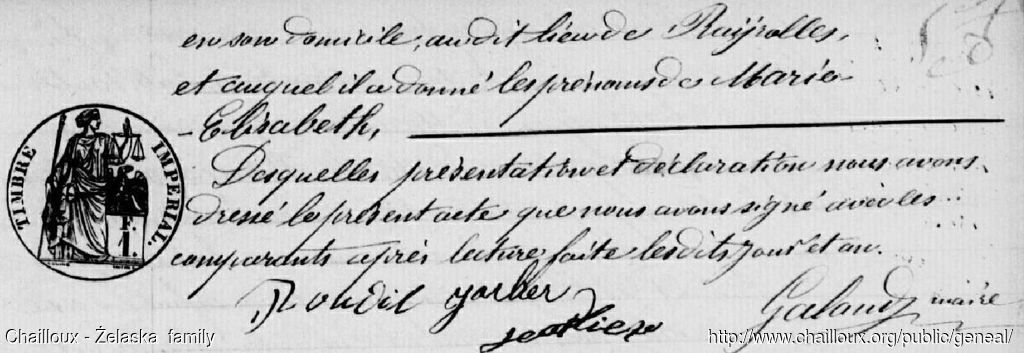 en son domicile, au dit lieu de Rayrolles,
et auquel il a donné les prénoms de Marie
- Elisabeth,
Desquelles présentation et déclaration nous avons
dressé le présent acte que nous avons signé avec les
comparants après lecture faite lesdits jour et an.
TIMBRE IMPERIAL.
Roudil
Galand maire
Chailloux - Żelaska family
http://www.chailloux.org/public/geneal/